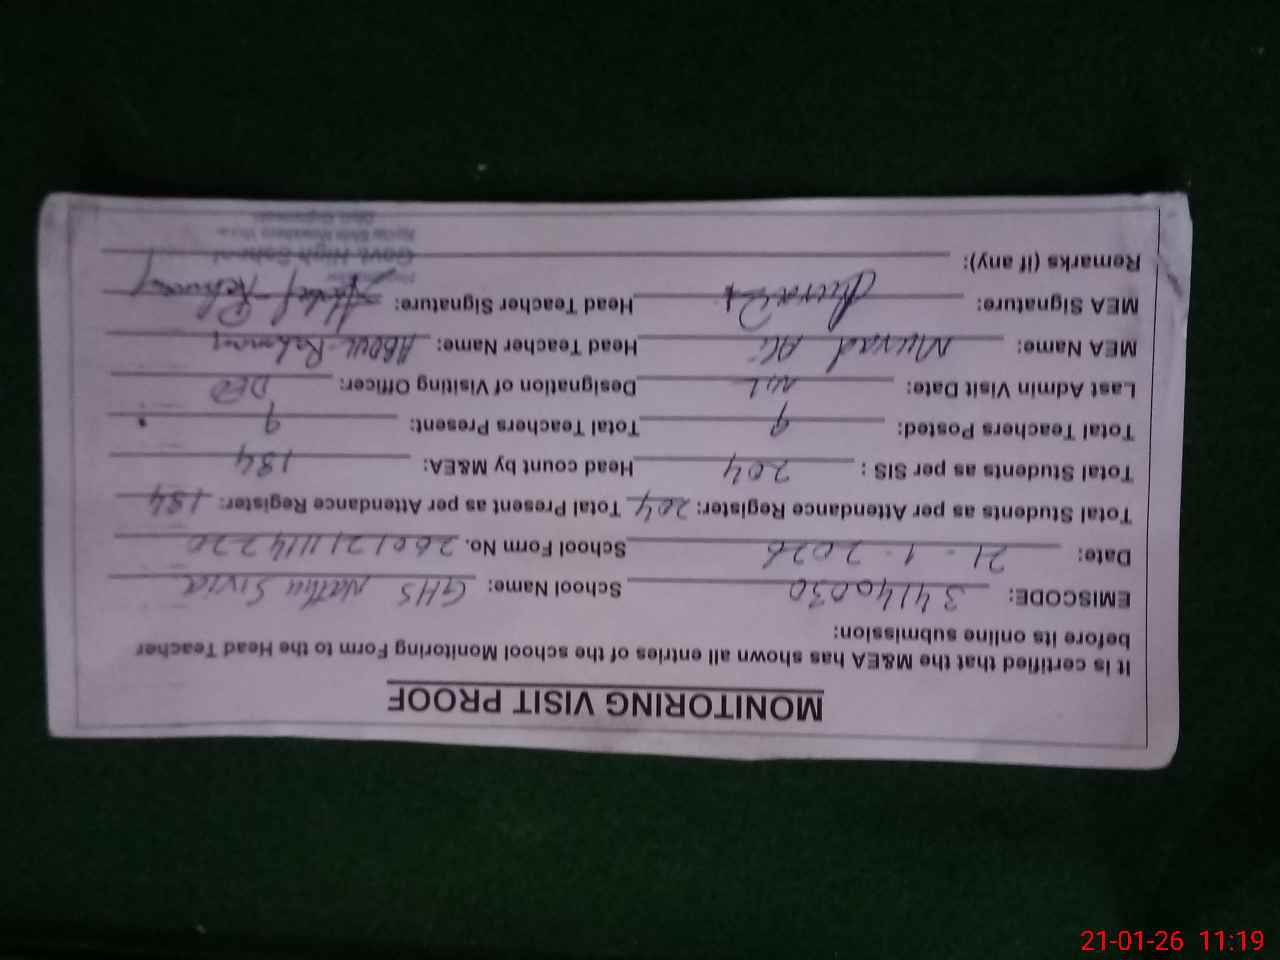 MONITORING VISIT PROOF
It is certified that the M&EA has shown all entries of the school Monitoring Form to the Head Teacher
before its online submission:
EMISCODE: 34140030 School Name: GHS Nathu Sivia
Date: 21-1-2026 School Form No. 2601211114220
Total Students as per Attendance Register: 204 Total Present as per Attendance Register: 184
Total Students as per SIS : 204 Head count by M&EA: 184
Total Teachers Posted: 9 Total Teachers Present: 9
Last Admin Visit Date: NIL Designation of Visiting Officer: DEO
MEA Name: Murad Ali Head Teacher Name: ABDUL Rehman
MEA Signature: Head Teacher Signature: Abdul Rehman
Remarks (if any): Govt. High School
21-01-26 11:19